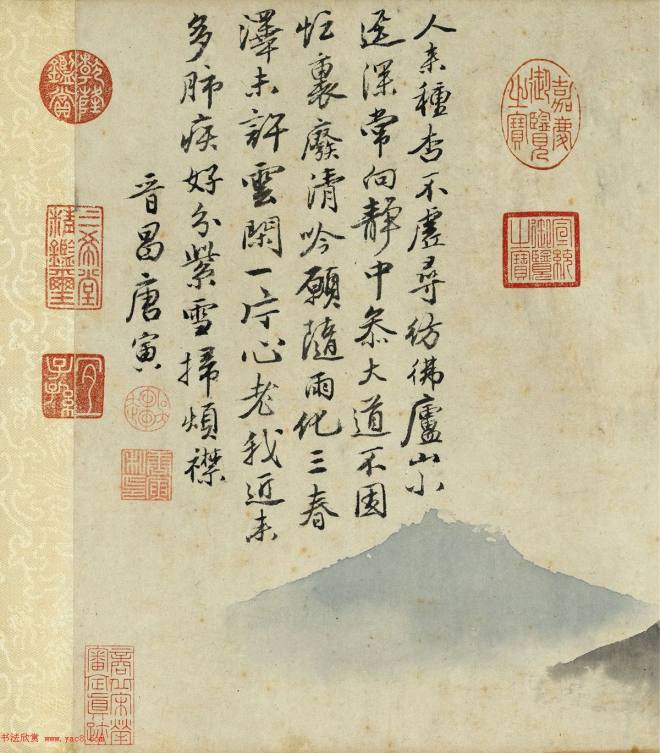 嘉慶御覽之寶
宣統御覽之寶
人来種杏不虛尋彷彿廬山小
逕深常向靜中叅大道不因
忙裏廢清吟願隨雨化三春
澤未許雲閑一片心老我近来
多肺疾好分紫雪掃煩襟
晉昌唐寅
乾隆鑑賞
三希堂精鑑璽
宜子孫
商丘宋犖審定真蹟
书法欣赏 www.yac8.com